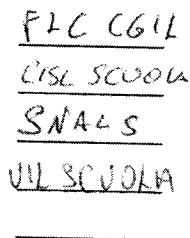 FLC CGIL
CISL SCUOLA
SNALS
UIL SCUOLA